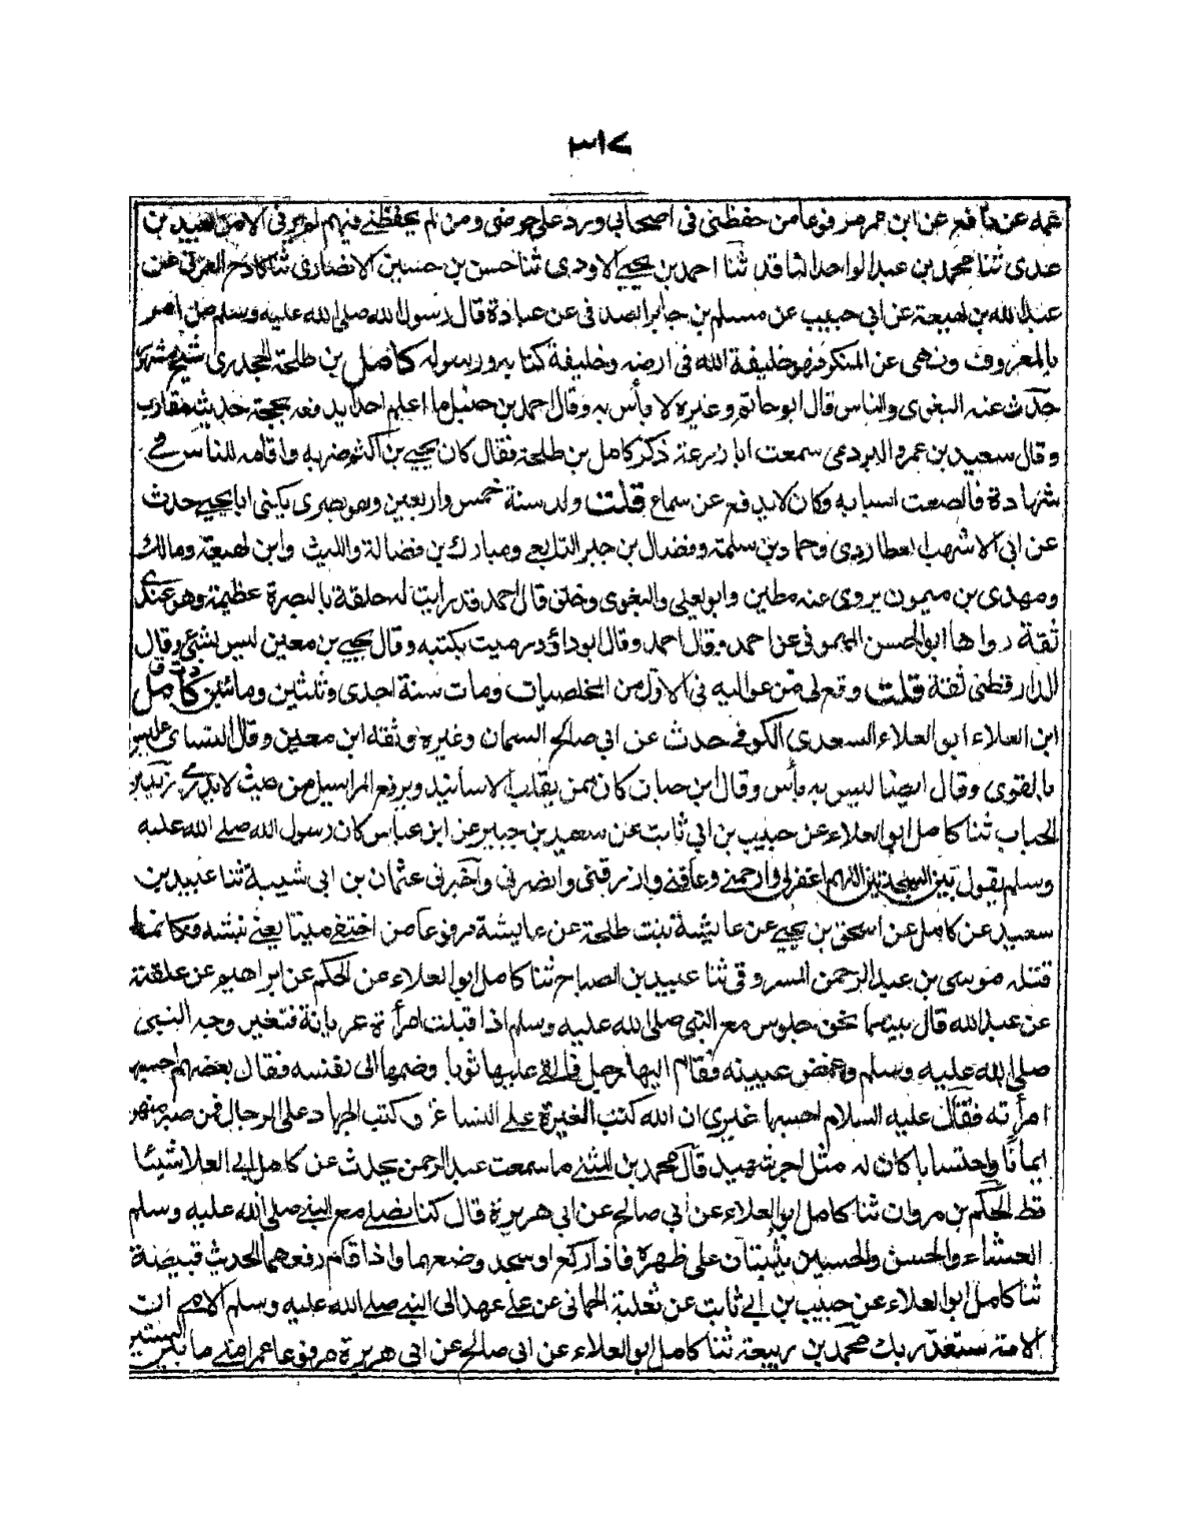 ٣١٧
عمه عن نافع عن ابن عمر مرفوعا من حفظني في اصحابي ورد علي حوضي ومن لم يحفظني فيهم لم يرني الا من بعيد بن
عدى ثنا محمد بن عبد الواحد الناقد ثنا احمد بن يحيى الاودى ثنا حسن بن حسين الانصارى ثنا كادح العرنى عن
عبد الله بن لهيعة عن ابى حبيب عن مسلم بن جابر الصدفى عن عبادة قال رسول الله صلى الله عليه وسلم من امر
بالمعروف ونهى عن المنكر فهو خليفة الله فى ارضه وخليفة كتابه ورسوله كامل بن طلحة الجحدرى شيخ مشهور
حدّث عنه البغوى والناس قال ابو حاتم وغيره لا بأس به وقال احمد بن حنبل ما اعلم احدا يدفعه بحجة حديثه مقارب
وقال سعيد بن عمرو البردعى سمعت ابا زرعة ذكر كامل بن طلحة فقال كان يحيى بن اكثم ضربه واقامه للناس فى
شهادة فاتضعت اسبابه وكان لا يدفع عن سماع قلت ولد سنة خمس واربعين وهو بصرى يكنى ابا يحيى حدث
عن ابى الاشهب العطاردى وحماد بن سلمة وفضال بن جبر التابعى ومبارك بن فضالة والليث وابن لهيعة ومالك
ومهدى بن ميمون يروى عنه مطين وابو يعلى والبغوى وخلق قال احمد قد رايت له حلقة بالبصرة عظيمة وهو عندى
ثقة رواها ابو الحسن الميمونى عن احمد وقال احمد وقال ابو داؤد رميت بكتبه وقال يحيى بن معين ليس بشئ وقال
الدارقطنى ثقة قلت وقع لى من عواليه فى الاول من المخلصيات ومات سنة احدى وثلثين ومائتين كامل
ابن العلاء ابو العلاء السعدى الكوفى حدث عن ابى صالح السمان وغيره وثقه ابن معين وقال النسائى ليس
بالقوى وقال ايضا ليس به بأس وقال ابن حبان كان ممن يقلب الاسانيد ويرفع المراسيل من حيث لا يدرى زيد بن
الحباب ثنا كامل ابو العلاء عن حبيب بن ابى ثابت عن سعيد بن جبير عن ابن عباس كان رسول الله صلى الله عليه
وسلم يقول بين السجدتين اللهم اغفر لى وارحمنى وعافنى وارزقنى وانصرنى وآخبرنى عثمان بن ابى شيبة ثنا عبيد بن
سعيد عن كامل عن اسحق بن يحيى عن عايشة بنت طلحة عن عايشة مرفوعا من اختفى ميتا يعنى نبشه فكانما
قتله موسى بن عبد الرحمن المسروقى ثنا عبيد بن الصباح ثنا كامل ابو العلاء عن الحكم عن ابراهيم عن علقمة
عن عبد الله قال بينما نحن جلوس مع النبى صلى الله عليه وسلم اذا قبلت امرأة عريانة فتغير وجه النبى
صلى الله عليه وسلم وغمض عينيه فقام اليها رجل فالقى عليها ثوبا وضمها الى نفسه فقال بعضهم احسبها
امرأته فقال عليه السلام احسبها غيرى ان الله كتب الغيرة على النساء وكتب الجهاد على الرجال فمن صبر منهن
ايمانا واحتسابا كان له مثل اجر شهيد قال محمد بن المثنى ما سمعت عبد الرحمن يحدث عن كامل ابى العلا شيئا
قط الحكم بن مروان ثنا كامل ابو العلاء عن ابى صالح عن ابى هريرة قال كنا نصلى مع النبى صلى الله عليه وسلم
العشاء والحسن والحسين يثبتان على ظهره فاذا ركع او سجد وضعهما واذا قام رفعهما الحديث قبيصة
ثنا كامل ابو العلاء عن حبيب بن ابى ثابت عن ثعلبة الحمانى عن على عهد الى النبى صلى الله عليه وسلم الامى ان
الامة ستغدر بك محمد بن ربيعة ثنا كامل ابو العلاء عن ابى صالح عن ابى هريرة مرفوعا عمر امتى ما بين الستين